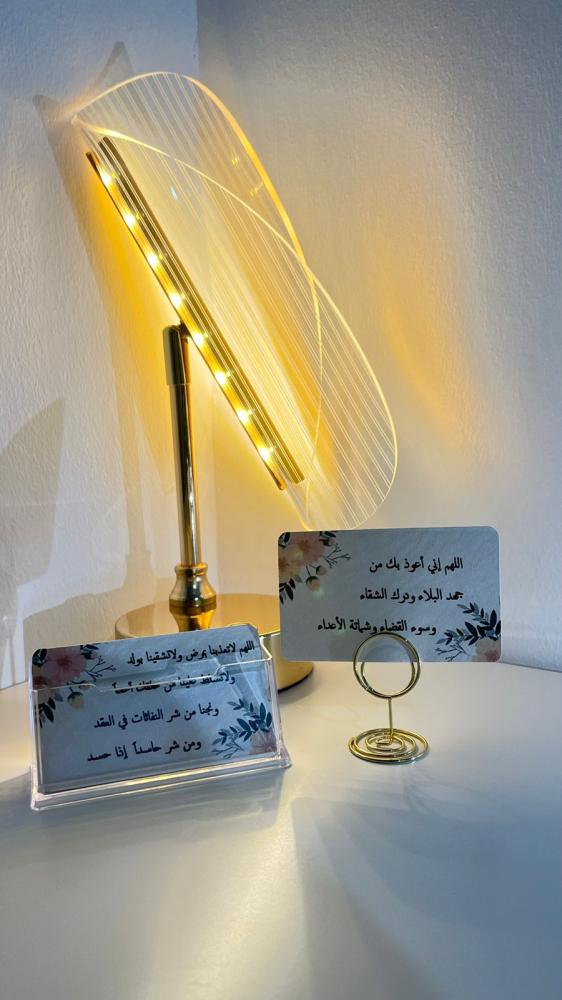 اللهم إني أعوذ بك من
جهد البلاء ودرك الشقاء
وسوء القضاء وشماتة الأعداء
اللهم لاتعذبنا بمرض ولاتشقينا بولد
ولاتسلط علينا من خلقك أحداً
ونجنا من شر النفاثات في العقد
ومن شر حاسداً إذا حسد